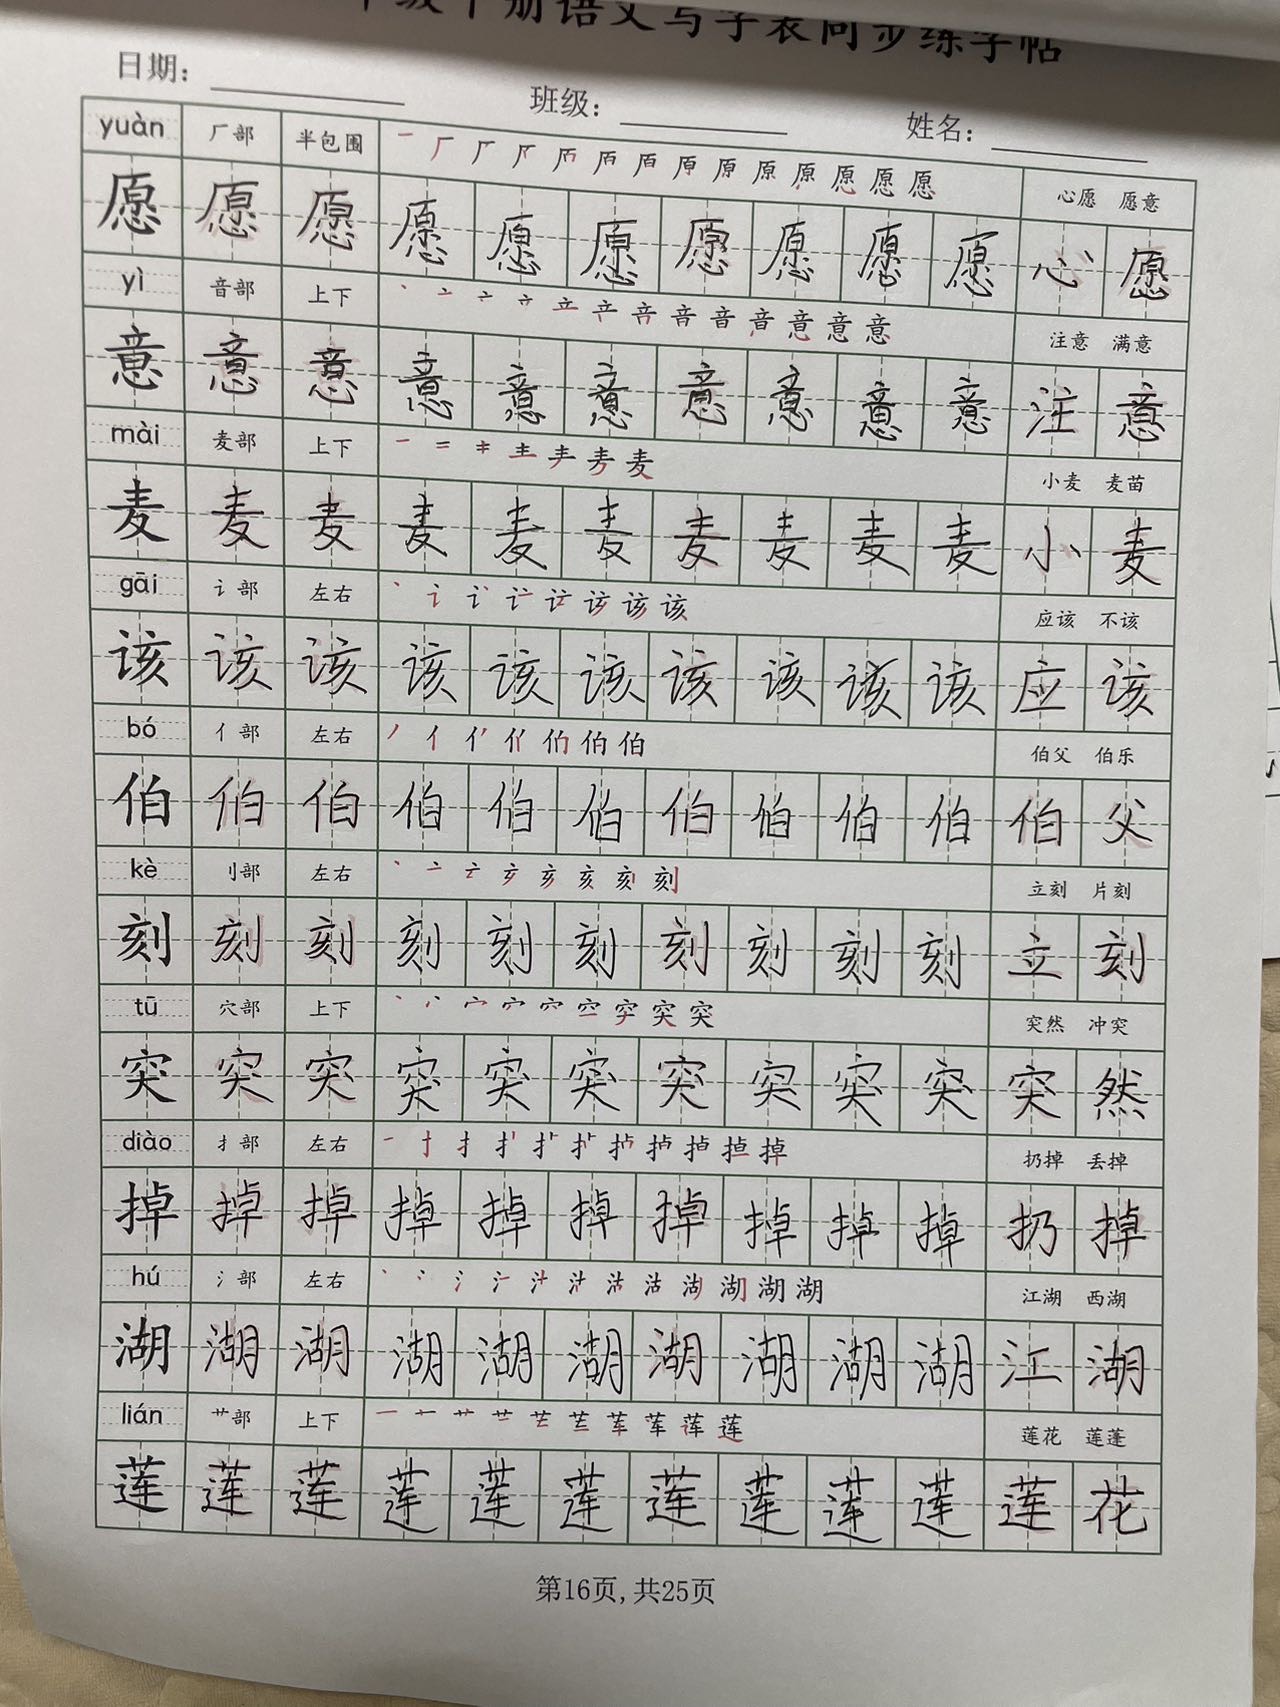 级下册语文写字表同步练字帖
日期： 班级： 姓名：
yuàn 厂部 半包围 一厂厂厂厉厉盾原原原原愿愿愿 心愿 愿意
愿 愿 愿 愿 愿 愿 愿 愿 愿 愿 心 愿
yì 音部 上下 丶亠亠立立产音音音音意意意 注意 满意
意 意 意 意 意 意 意 意 意 意 注 意
mài 麦部 上下 一二キ主丰麦麦 小麦 麦苗
麦 麦 麦 麦 麦 麦 麦 麦 麦 麦 小 麦
gāi 讠部 左右 丶讠讠讠讠该该该 应该 不该
该 该 该 该 该 该 该 该 该 该 应 该
bó 亻部 左右 丿亻亻亻伯伯伯 伯父 伯乐
伯 伯 伯 伯 伯 伯 伯 伯 伯 伯 伯 父
kè 刂部 左右 丶亠亠亥亥亥刻刻 立刻 片刻
刻 刻 刻 刻 刻 刻 刻 刻 刻 刻 立 刻
tū 穴部 上下 丶丷宀宀穴空突突突 突然 冲突
突 突 突 突 突 突 突 突 突 突 突 然
diào 扌部 左右 一十扌扌扌扌护护掉掉掉 扔掉 丢掉
掉 掉 掉 掉 掉 掉 掉 掉 掉 掉 扔 掉
hú 氵部 左右 丶冫氵氵汁汁沽沽湖湖湖湖 江湖 西湖
湖 湖 湖 湖 湖 湖 湖 湖 湖 湖 江 湖
lián 艹部 上下 一十艹芒芒芒莗莗莲莲 莲花 莲蓬
莲 莲 莲 莲 莲 莲 莲 莲 莲 莲 莲 花
第16页,共25页